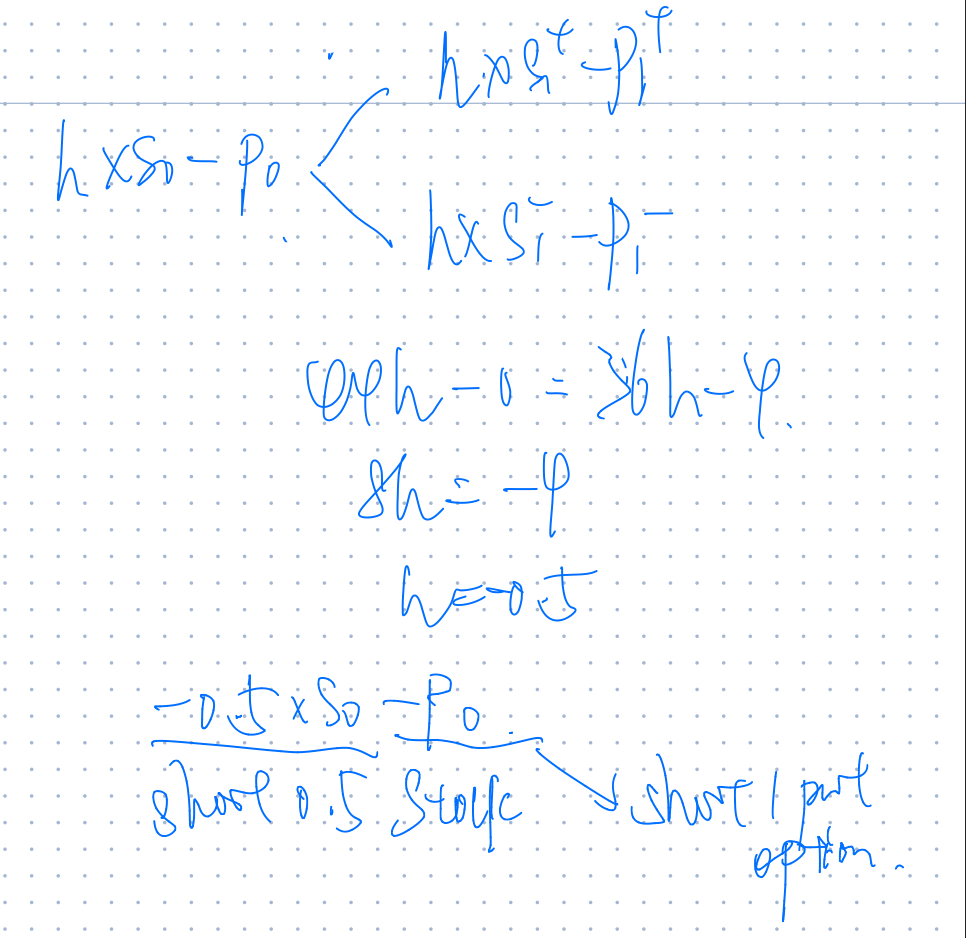 h×S₁⁺-P₁⁺
h×S₀-P₀
h×S₁⁻-P₁⁻
44h-0=36h-4.
8h=-4
h=-0.5
-0.5×S₀-P₀.
short 0.5 stock short 1 put
option.